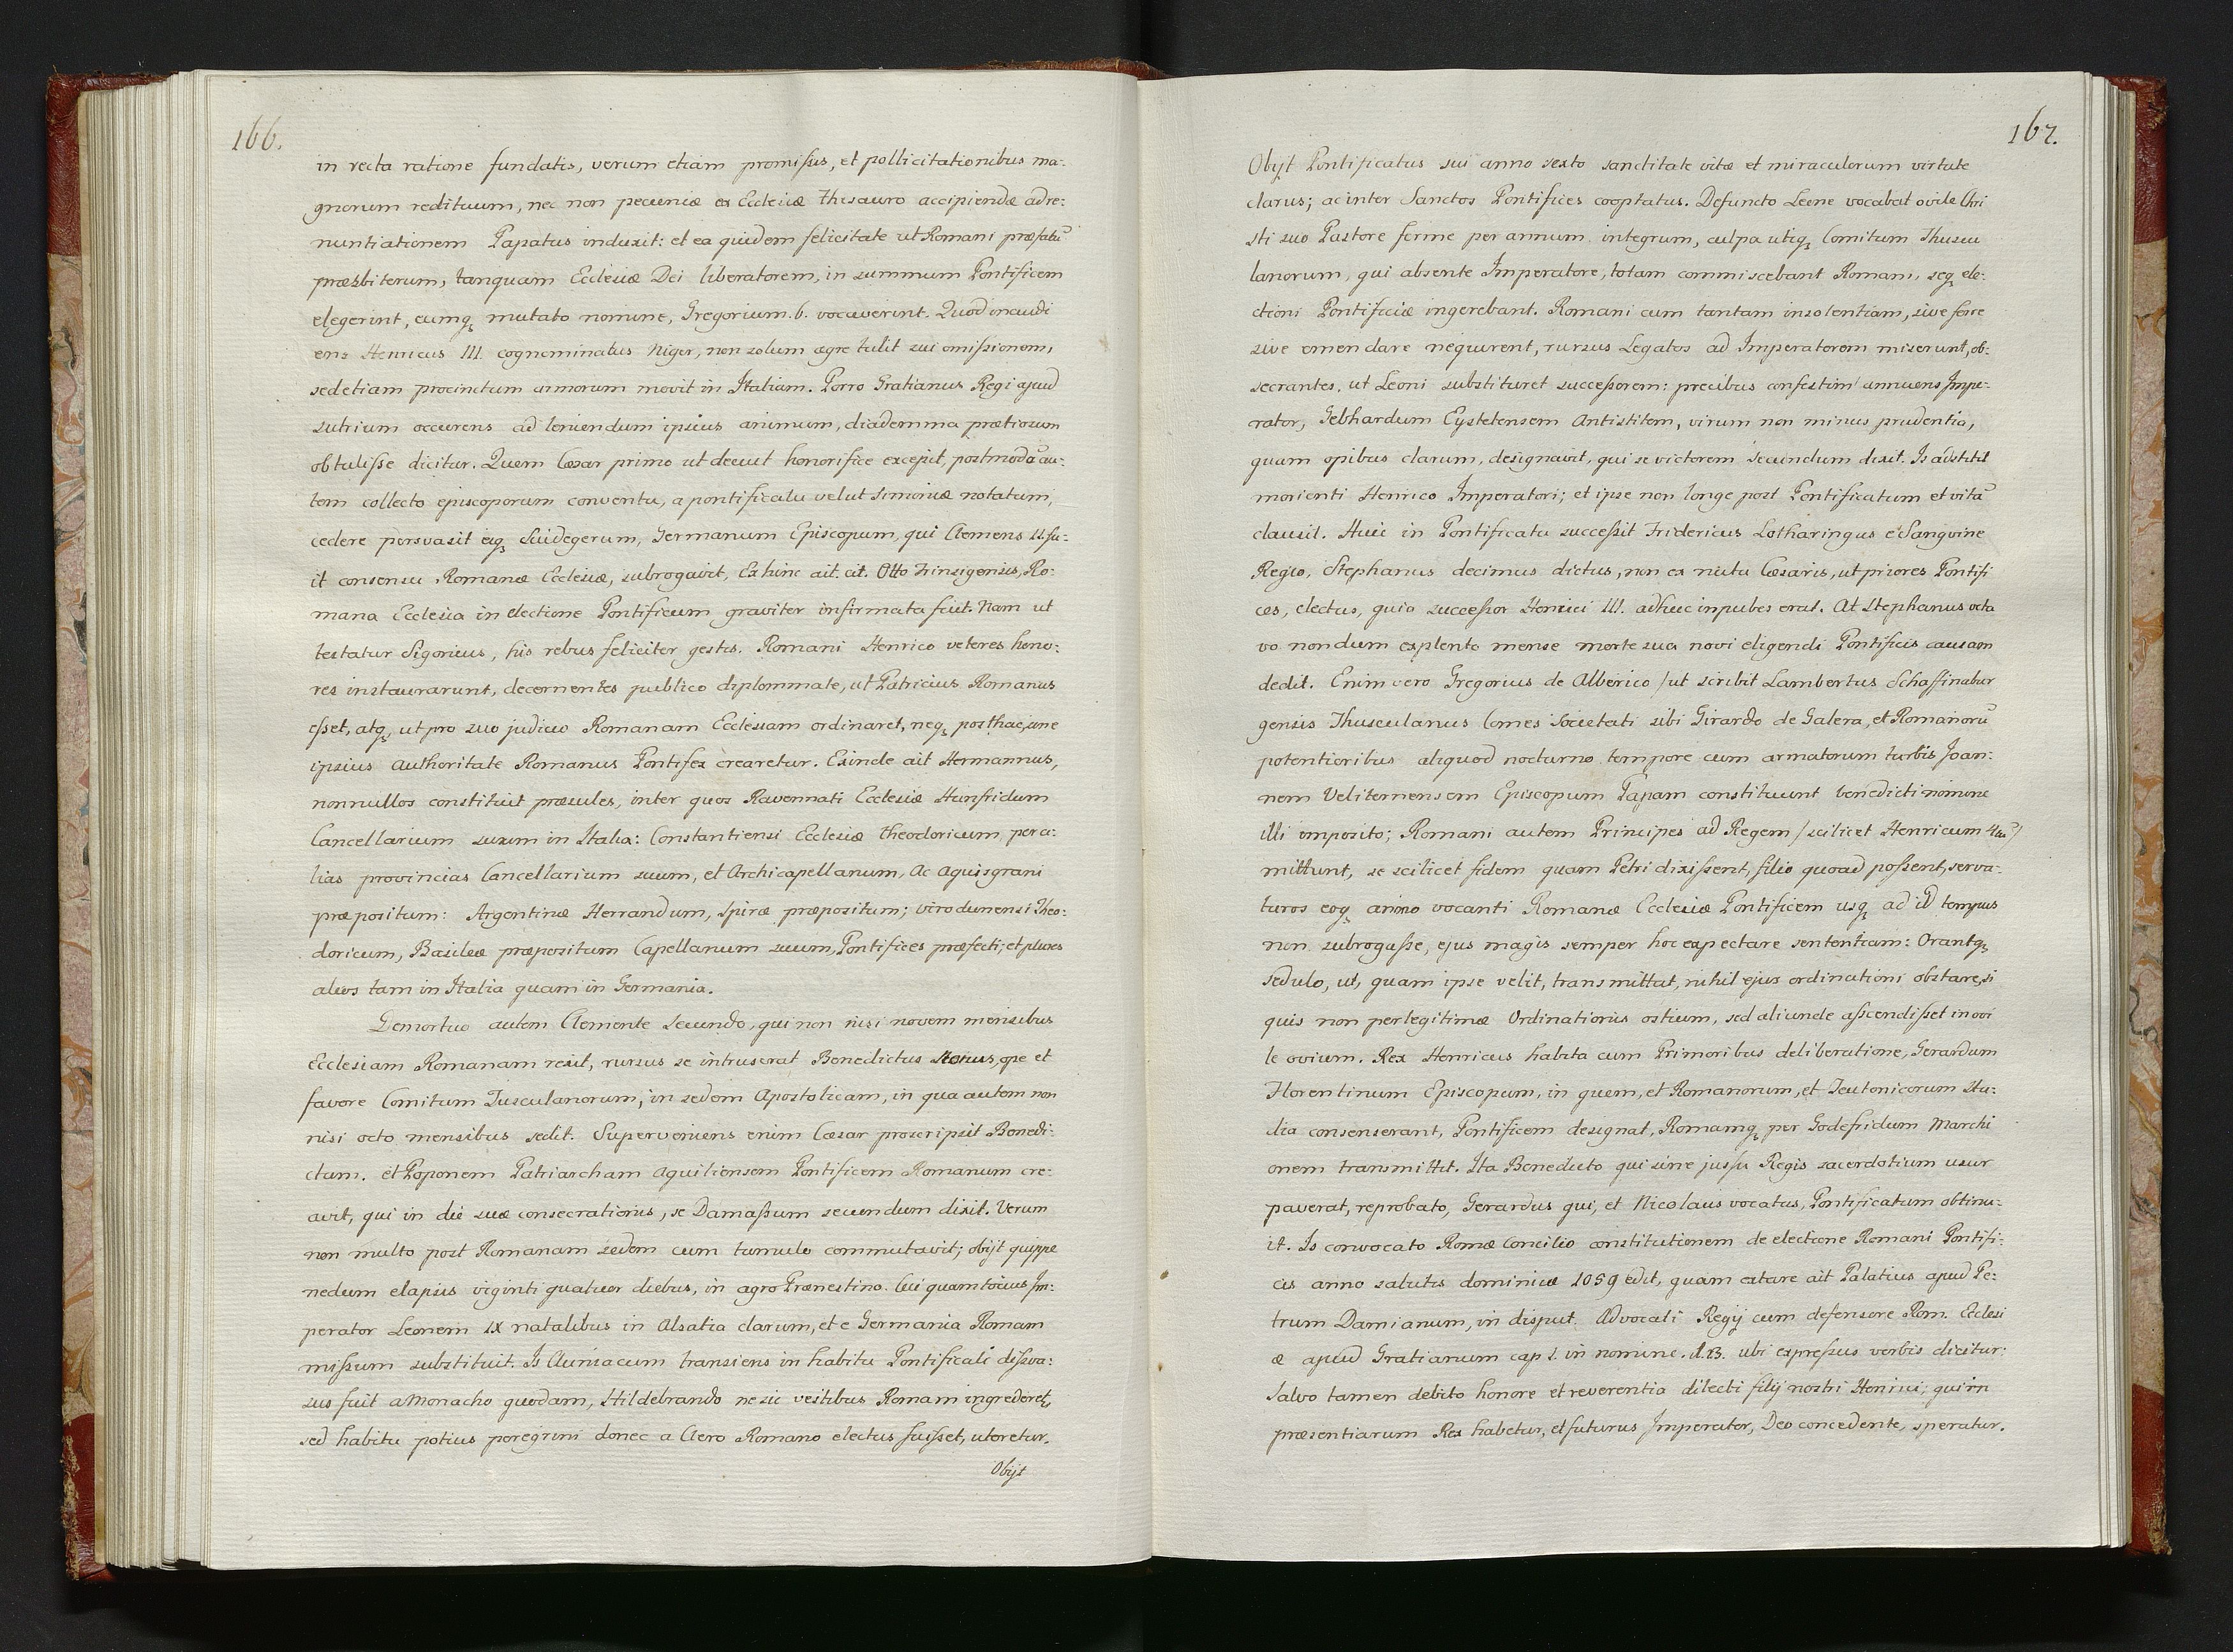 166.
in recta ratione fundatis, verum etiam promißis, et pollicitationibus ma:
gnorum redituum, nec non pecuniæ ex Ecclesiæ Thesauro accipiendæ ad re:
nuntiationem Papatus induxit: et ea quidem felicitate ut Romani præfatū
præsbiterum, tanquam Ecclesiæ Dei liberatorem, in summum Pontificem
elegerint, eumq3 mutato nomine, Gregorium. 6. vocaverint. Quod inaudi
ens Henricus III. cognominatus Niger, non solum ægre tulit sui omißionem,
sed etiam procinctum armorum movit in Italiam. Porro Gratianus Regi apud
sutrium occurens ad leniendum ipsius animum, diademma prætiosum
obtuliße dicitur. Quem Cæsar primo ut decuit honorifice excepit, postmodū au:
tem collecto episcoporum conventu, a pontificatu velut simoniæ notatum,
cedere persvasit eiq3 Suidegerum, Germanum Episcopum, qui Clemens II. fu:
it consensu Romanæ Ecclesiæ, subrogavit, Ex hinc ait. cit. Otto Frinsigensis, Ro:
mana Ecclesia in electione Pontificum graviter infirmata fuit. Nam ut
testatur Sigonius, his rebus feliciter gestis. Romani Henrico veteres hono:
res instaurarunt, decernentes publico diplommate, ut Patricius Romanus
eßet, atq3, ut pro suo judicio Romanam Ecclesiam ordinaret, neq3 posthac, sine
ipsius Authoritate Romanus Pontifex crearetur. Exinde ait Hermannus,
nonnullos constituit præsules, inter quos Ravennati Ecclesiæ Hunfridum
Cancellarium suum in Italia: Constantiensi Ecclesiæ theodoricum, per a:
lias provincias Cancellarium suum, et Archicapellanum, Ac Aquisgrani
præpositum: Argentinæ Herrandum, Spiræ præpositum; virodunensi Theo:
doricum, Basileæ præpositum Capellanum suum, Pontifices præfecit; et plures
alios tam in Italia quam in Germania.
Demortuo autem Clemente Secundo, qui non nisi novem mensibus
Ecclesiam Romanam rexit, rursus se intruserat Benedictus Nonus, ope et
favore Comitum Tusculanorum, in sedem Apostolicam, in qua autem non
nisi octo mensibus sedit. Superveniens enim Cæsar proscripsit Benedi:
ctum. et Poponem Patriarcham Aquiliensem Pontificem Romanum cre:
avit, qui in die suæ consecrationis, se Damaßum secundum dixit. Verum
non multo post Romanam sedem cum tumulo commutavit; obijt quippe
nedum elapsis viginti quatuor diebus, in agro Prænestino. Cui quam tocius Im:
perator Leonem IX natalibus in Alsatia clarum, et e Germania Romam
mißum substituit. Is Cluniacum transiens in habitu Pontificali dißva:
sus fuit a Monacho quodam, Hildebrando ne sic vestibus Romam ingrederet,
sed habitu potius peregrini donec a Clero Romano electus fuißet, uteretur.
Obijt
167.
Obijt Pontificatus sui anno sexto sanctitate vitæ et miraculorum virtute
clarus; ac inter Sanctos Pontifices cooptatus. Defuncto Leone vocabat ovile Chri
sti suo Pastore ferme per annum integrum, culpa utiq3 Comitum Thuscu
lanorum, qui absente Imperatore, totam commiscebant Romam, seq3 ele:
ctioni Pontificiæ ingerebant. Romani cum tantam insolentiam, sive ferre
sive emendare nequirent, rursus Legatos ad Imperatorem miserunt, ob:
secrantes, ut Leoni substitueret succeßorem: precibus confestim annuens Impe:
rator, Gebhardum Eystetensem Antistitem, virum non minus prudentia,
quam opibus clarum, designavit, qui se victorem Secundum dixit. Is adstitit
morienti Henrico Imperatori; et ipse non longe post Pontificatum et vitā
clausit. Huic in Pontificatu succeßit Fridericus Lotharingus e Sangvine
Regio, Stephanus decimus dictus, non ex nutu Cæsaris, ut priores Pontifi
ces, electus, quia succeßor Henrici III. adhuc inpubes erat. At Stephanus octa
vo nondum explento mense morte sua novi eligendi Pontificis causam
dedit. Enim vero Gregorius de Alberico / ut scribit Lambertus Schaffinabur
gensis Thusculanus Comes Societati sibi Girardo de Galera, et Romanorū
potentioribus aliquod nocturno tempore cum armatorum turbis Joan:
nem Veliternensem Episcopum Papam constituunt benedicti nomine
illi imposito; Romani autem Principes ad Regem / scilicet Henricum 4tū /
mittunt, se scilicet fidem quam Petri dixißent, filio quoad poßent, serva:
turos eoq3 animo vocanti Romanæ Ecclesiæ Pontificem usq3 ad id tempus
non subrogaße, ejus magis semper hoc expectare sententiam: Orantq3
sedulo, ut, quam ipse velit, transmittat, nihil ejus ordinationi obstare, si
quis non per legitimæ Ordinationis ostium, sed aliunde aßcendißet in ovi
le ovium. Rex Henricus habita cum Primoribus deliberatione, Gerardum
Florentinum Episcopum, in quem, et Romanorum, et Teutonicorum stu:
dia consenserant, Pontificem designat, Romamq3 per Godefridum Marchi
onem transmittit. Ita Benedicto qui sine jußu Regis sacerdotium usur
paverat, reprobato, Gerardus qui, et Nicolaus vocatus, Pontificatum obtinu:
it. Is convocato Romæ Concilio constitutionem de electione Romani Pontifi:
cis anno salutis dominicæ 1059 edit, quam extare ait Palatius apud Pe:
trum Damianum, in disput. Advocati Regij cum defensore Rom. Ecclesi
æ apud Gratianum cap 1. in nomine. d. 23. ubi expreßus verbis dicitur:
Salvo tamen debito honore et reverentia dilecti filij nostri Henrici, qui in
præsentiarum Rex habetur, et futurus Imperator, Deo concedente, speratur.